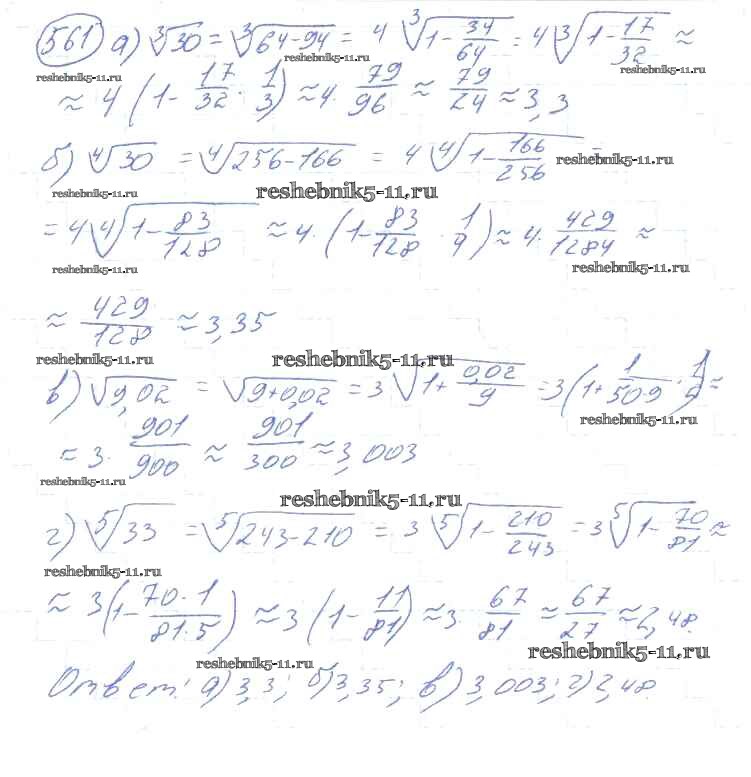 561 а) ∛30 = ∛(64-94) = 4 ∛(1-34/64) = 4 ∛(1-17/32) ≈
reshebnik5-11.ru reshebnik5-11.ru reshebnik5-11.ru
≈ 4 (1- 17/32 · 1/3) ≈ 4 · 79/96 ≈ 79/24 ≈ 3,3
б) ∜30 = ∜(256-166) = 4 ∜(1-166/256) =
reshebnik5-11.ru reshebnik5-11.ru reshebnik5-11.ru
= 4 ∜(1-83/128) ≈ 4 · (1- 83/128 · 1/4) ≈ 4 · 429/1284 ≈
reshebnik5-11.ru reshebnik5-11.ru
≈ 429/128 ≈ 3,35
reshebnik5-11.ru reshebnik5-11.ru
в) √9,02 = √(9+0,02) = 3 √(1+ 0,02/9) = 3(1+ 1/(50·9) · 1/2) ≈
reshebnik5-11.ru
= 3 · 901/900 ≈ 901/300 ≈ 3,003
reshebnik5-11.ru reshebnik5-11.ru
г) ⁵√33 = ⁵√(243-210) = 3 ⁵√(1-210/243) = 3 ⁵√(1-70/81) ≈
reshebnik5-11.ru
≈ 3(1- 70·1/81·5) ≈ 3 (1- 11/81) ≈ 3 · 67/81 ≈ 67/27 ≈ 2,48.
reshebnik5-11.ru reshebnik5-11.ru
Ответ: а) 3,3; б) 3,35; в) 3,003; г) 2,48.